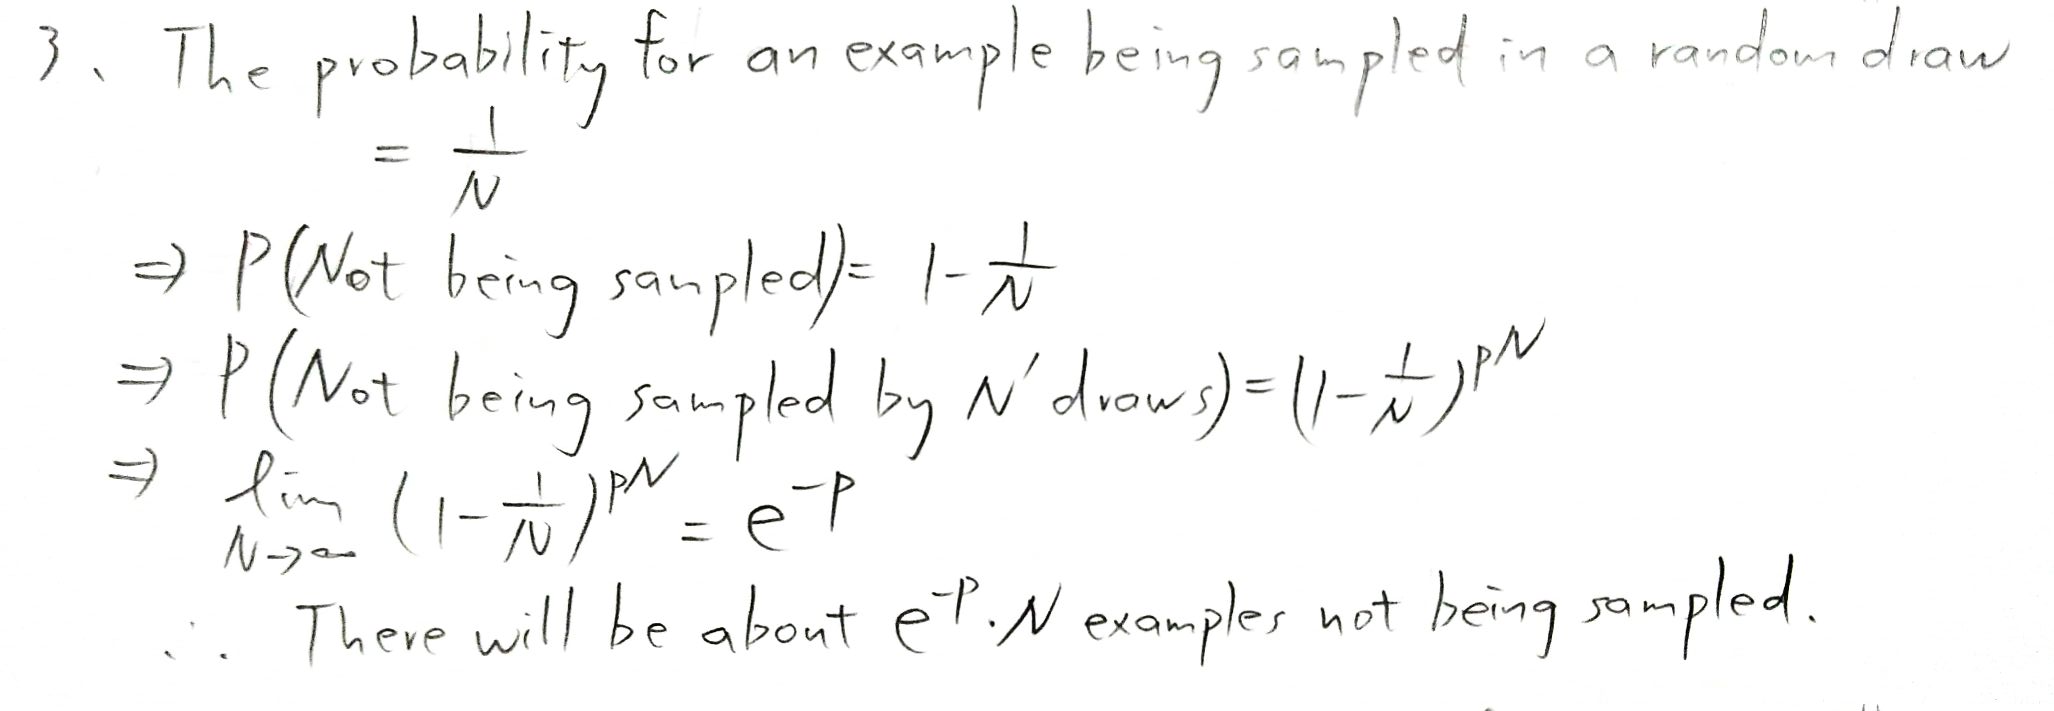 3. The probability for an example being sampled in a random draw
= 1/N
⇒ P(Not being sampled) = 1 - 1/N
⇒ P(Not being sampled by N' draws) = (1 - 1/N)^pN
⇒ lim N→∞ (1 - 1/N)^pN = e^-p
∴ There will be about e^-p · N examples not being sampled.